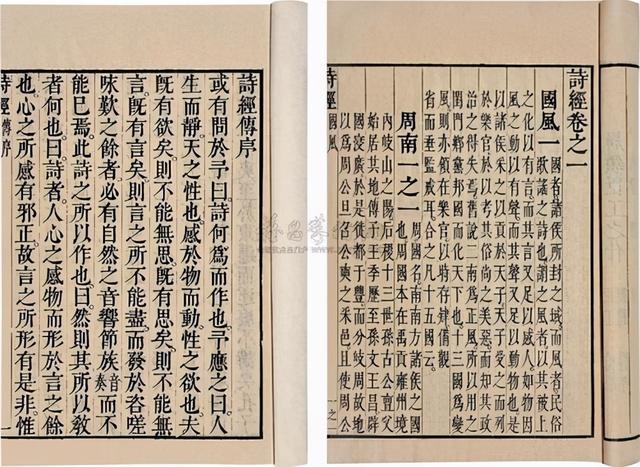 詩經傳序
或有問於予曰詩何爲而作也予應之曰人
生而靜天之性也感於物而動性之欲也夫
既有欲矣則不能無思既有思矣則不能無
言既有言矣則言之所不能盡而發於咨嗟
咏歎之餘者必有自然之音響節族音奏而不
能已焉此詩之所以作也曰然則其所以教
者何也曰詩者人心之感物而形於言之餘
也心之所感有邪正故言之所形有是非惟
詩經 傳序 一
詩經卷之一
國風一 國者諸侯所封之域而風者民俗
歌謠之詩也謂之風者以其被上
之化以有言而其言又足以感人如物因
風之動以有聲而其聲又足以動物也是
以諸侯采之以貢於天子天子受之而列
於樂官於以考其俗尚之美惡而知其政
治之得失焉舊說二南爲正風所以用之
閨門鄉黨邦國而化天下也十三國爲變
風則亦領在樂官以時存肄備觀
省而垂監戒耳合之凡十五國云
周南一之一 周國名南南方諸侯之國
也周國本在禹貢雍州境
內岐山之陽后稷十三世孫古公亶父
始居其地傳子王季歷至孫文王昌辟
國寖廣於是徙都于豐而分岐周故地
以爲周公旦召公奭之采邑且使周公
詩經 國風 一之